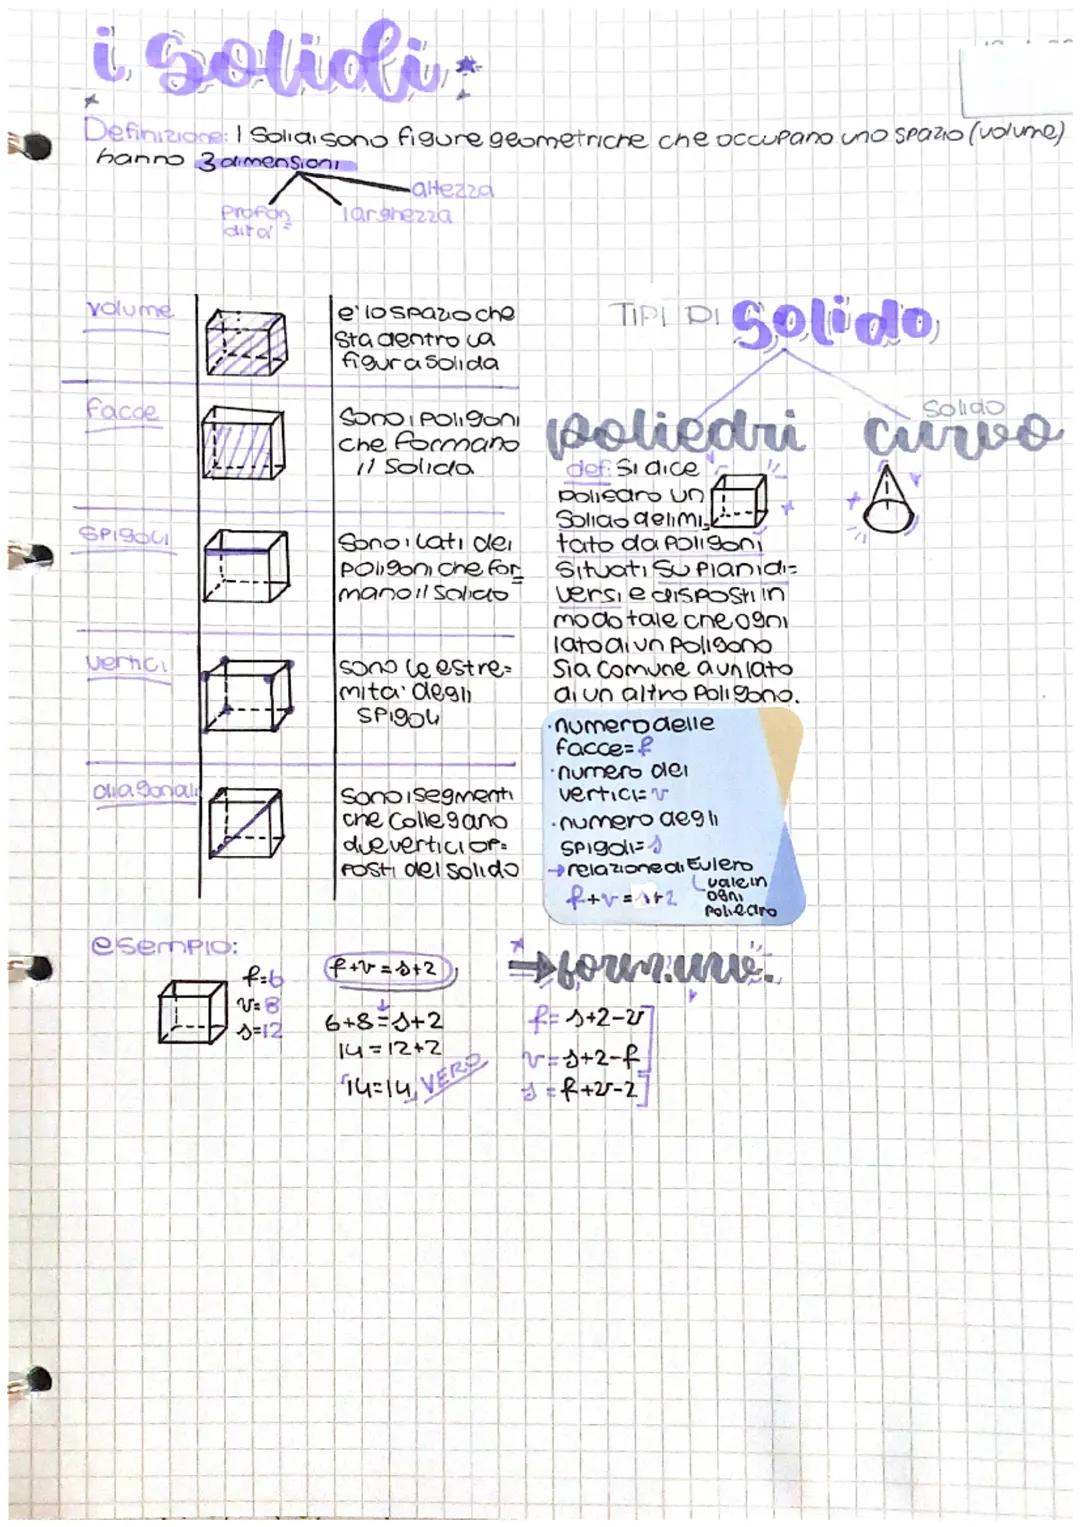 i solidi
Definizione: I Solidi sono figure geometriche che occupano uno spazio (volume)
hanno 3 dimensioni
altezza
profon=
dità
larghezza
volume
e' lo spazio che
sta dentro la
figura solida
facce
sono i poligoni
che formano
il solido
spigoli
sono i lati dei
poligoni che for=
mano il solido
vertici
sono le estre=
mita' degli
spigoli
diagonali
sono i segmenti
che collegano
due vertici op=
posti del solido
TIPI DI solido
poliedri
Solido
curvo
def: Si dice
poliedro un
solido delimi=
tato da poligoni
situati su piani di=
versi e disposti in
modo tale che ogni
lato di un poligono
sia comune a un lato
di un altro poligono.
·numero delle
facce= f
·numero dei
vertici= v
·numero degli
spigoli= s
→relazione di Eulero
vale in
ogni
poliedro
f+v=s+2
esempio:
f=6
v=8
s=12
f+v=s+2
6+8=s+2
14=12+2
14=14 VERO
form. inv.
f= s+2-v
v=s+2-f
s=f+v-2